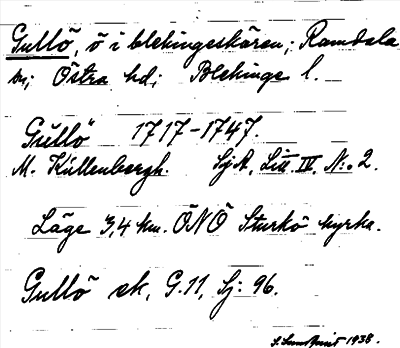 Gullö, ö i blekingeskären; Ramdala
sn; Östra hd; Blekinge l.
Gullö 1717-1747.
M. Küllenbergh. SjA, Litt. IV, N:. 2.
Läge 3,4 km. ÖNÖ Sturkö kyrka.
Gullö ek, G.11, Sj: 96.
1938.